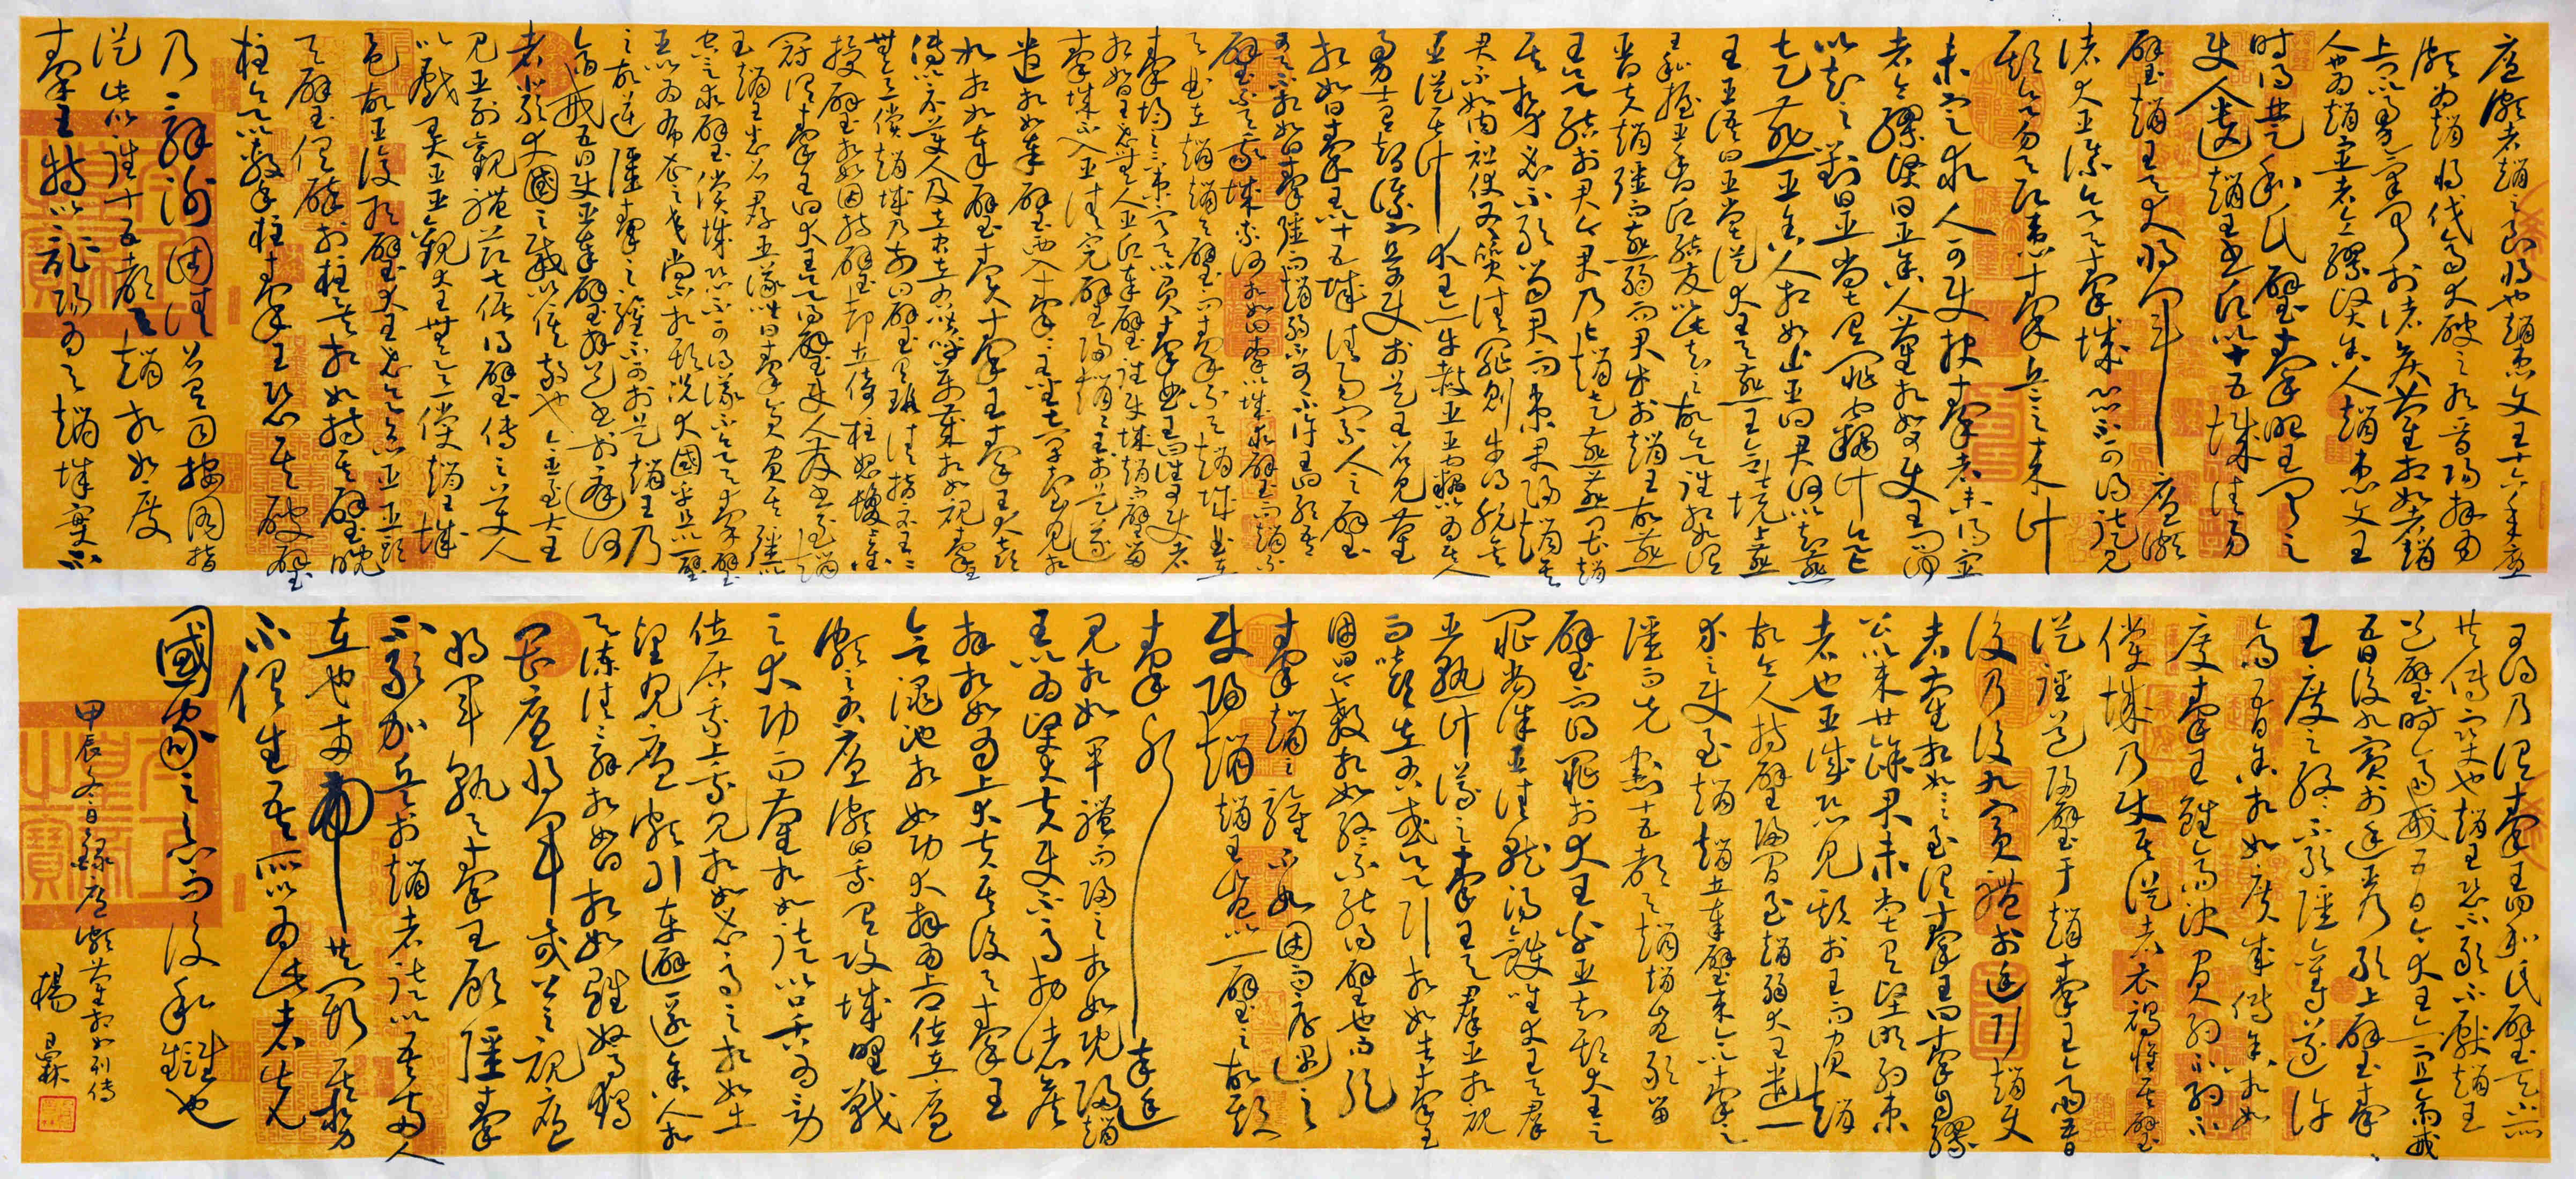 廉頗者趙之良將也趙惠文王十六年廉
頗為趙將伐齊大破之取晉陽拜為
上卿以勇氣聞於諸侯藺相如者趙
人也為趙宦者令繆賢舍人趙惠文王
時得楚和氏璧秦昭王聞之
使人遺趙王書願以十五城請易
璧趙王與大將軍廉頗
諸大臣謀欲予秦城恐不可得徒見
欺欲勿予即患秦兵之來計
未定求人可使報秦者未得宦
者令繆賢曰臣舍人藺相如可使王問何
以知之對曰臣嘗有罪竊計欲亡
走燕臣舍人相如止臣曰君何以知燕
王臣語曰臣嘗從大王與燕王會境上燕
王私握臣手曰願結友以此知之故欲往相如謂
臣曰夫趙彊而燕弱而君幸於趙王故燕
王欲結於君今君乃亡趙走燕燕畏趙
其勢必不敢留君而束君歸趙矣
君不如肉袒伏斧質請罪則幸得脫矣
臣從其計大王亦幸赦臣臣竊以為其人
勇士有智謀宜可使於是王召見藺
相如曰秦王以十五城請易寡人之璧
可予不相如曰秦彊而趙弱不可不許王曰取吾
璧不予我城奈何相如曰秦以城求璧而趙不
予曲在趙趙予璧而秦不予趙城曲在
秦均之二策寧許以負秦曲王曰誰可使者
相如曰王必無人臣願奉璧往使城入趙而璧留
秦城不入臣請完璧歸趙趙王於是遂
遣相如奉璧西入秦秦王坐章臺見相
如相如奉璧奏秦王秦王大喜
傳以示美人及左右左右皆呼萬歲相如視秦王
無意償趙城乃前曰璧有瑕請指示王王
授璧相如因持璧卻立倚柱怒髮上衝
冠謂秦王曰大王欲得璧使人發書至趙
王趙王悉召群臣議皆曰秦貪負其彊以
空言求璧償城恐不可得議不欲予秦璧
臣以為布衣之交尚不相欺況大國乎且以一璧
之故逆彊秦之驩不可於是趙王乃
齋戒五日使臣奉璧拜送書於庭何
者以嚴大國之威以修敬也今臣至大王
見臣列觀禮節甚倨得璧傳之美人
以戲弄臣臣觀大王無意償趙王城
邑故臣復取璧大王必欲急臣臣頭
今與璧俱碎於柱矣相如持其璧睨
柱欲以擊柱秦王恐其破璧
乃辭謝固請召有司按圖指
從此以往十五都予趙相如度
秦王特以詐陽為予趙城實不
可得乃謂秦王曰和氏璧天下所
共傳寶也趙王恐不敢不獻趙王
送璧時齋戒五日今大王亦宜齋戒
五日設九賓於廷臣乃敢上璧秦
王度之終不可彊奪遂許
齋五日舍相如廣成傳舍相如
度秦王雖齋決負約不
償城乃使其從者衣褐懷其璧
從徑道歸璧于趙秦王齋五日
後乃設九賓禮於廷引趙使
者藺相如相如至謂秦王曰秦自繆
公以來廿餘君未嘗有堅明約束
者也臣誠恐見欺於王而負趙
故令人持璧歸間至趙大王遣一
介之使至趙趙立奉璧來今以秦之
彊而先割十五都予趙趙豈敢留
璧而得罪於大王乎臣知欺大王之
罪當誅臣請就湯鑊唯大王與群
臣孰計議之秦王與群臣相視
而嘻左右或欲引相如去秦王
因曰今殺相如終不能得璧也而絕
秦趙之驩不如因而厚遇之
使歸趙趙王豈以一璧之故欺
秦邪卒廷
見相如畢禮而歸之相如既歸趙
王以為賢大夫使不辱於諸侯
拜相如為上大夫其後秦王
會澠池相如功大拜為上卿位在廉
頗之右廉頗曰我有攻城野戰
之大功而藺相如徒以口舌為勞
位居我上我見相如必辱之相如出
望見廉頗引車避匿舍人相
與諫請辭相如曰相如雖駑獨
畏廉將軍哉公之視廉
將軍孰與秦王顧彊秦
不敢加兵於趙者徒以吾兩人
在也兩虎共鬥其勢
不俱生吾所以為此者先
國家之急而後私讎也
甲辰冬日錄廉頗藺相如列傳
楊